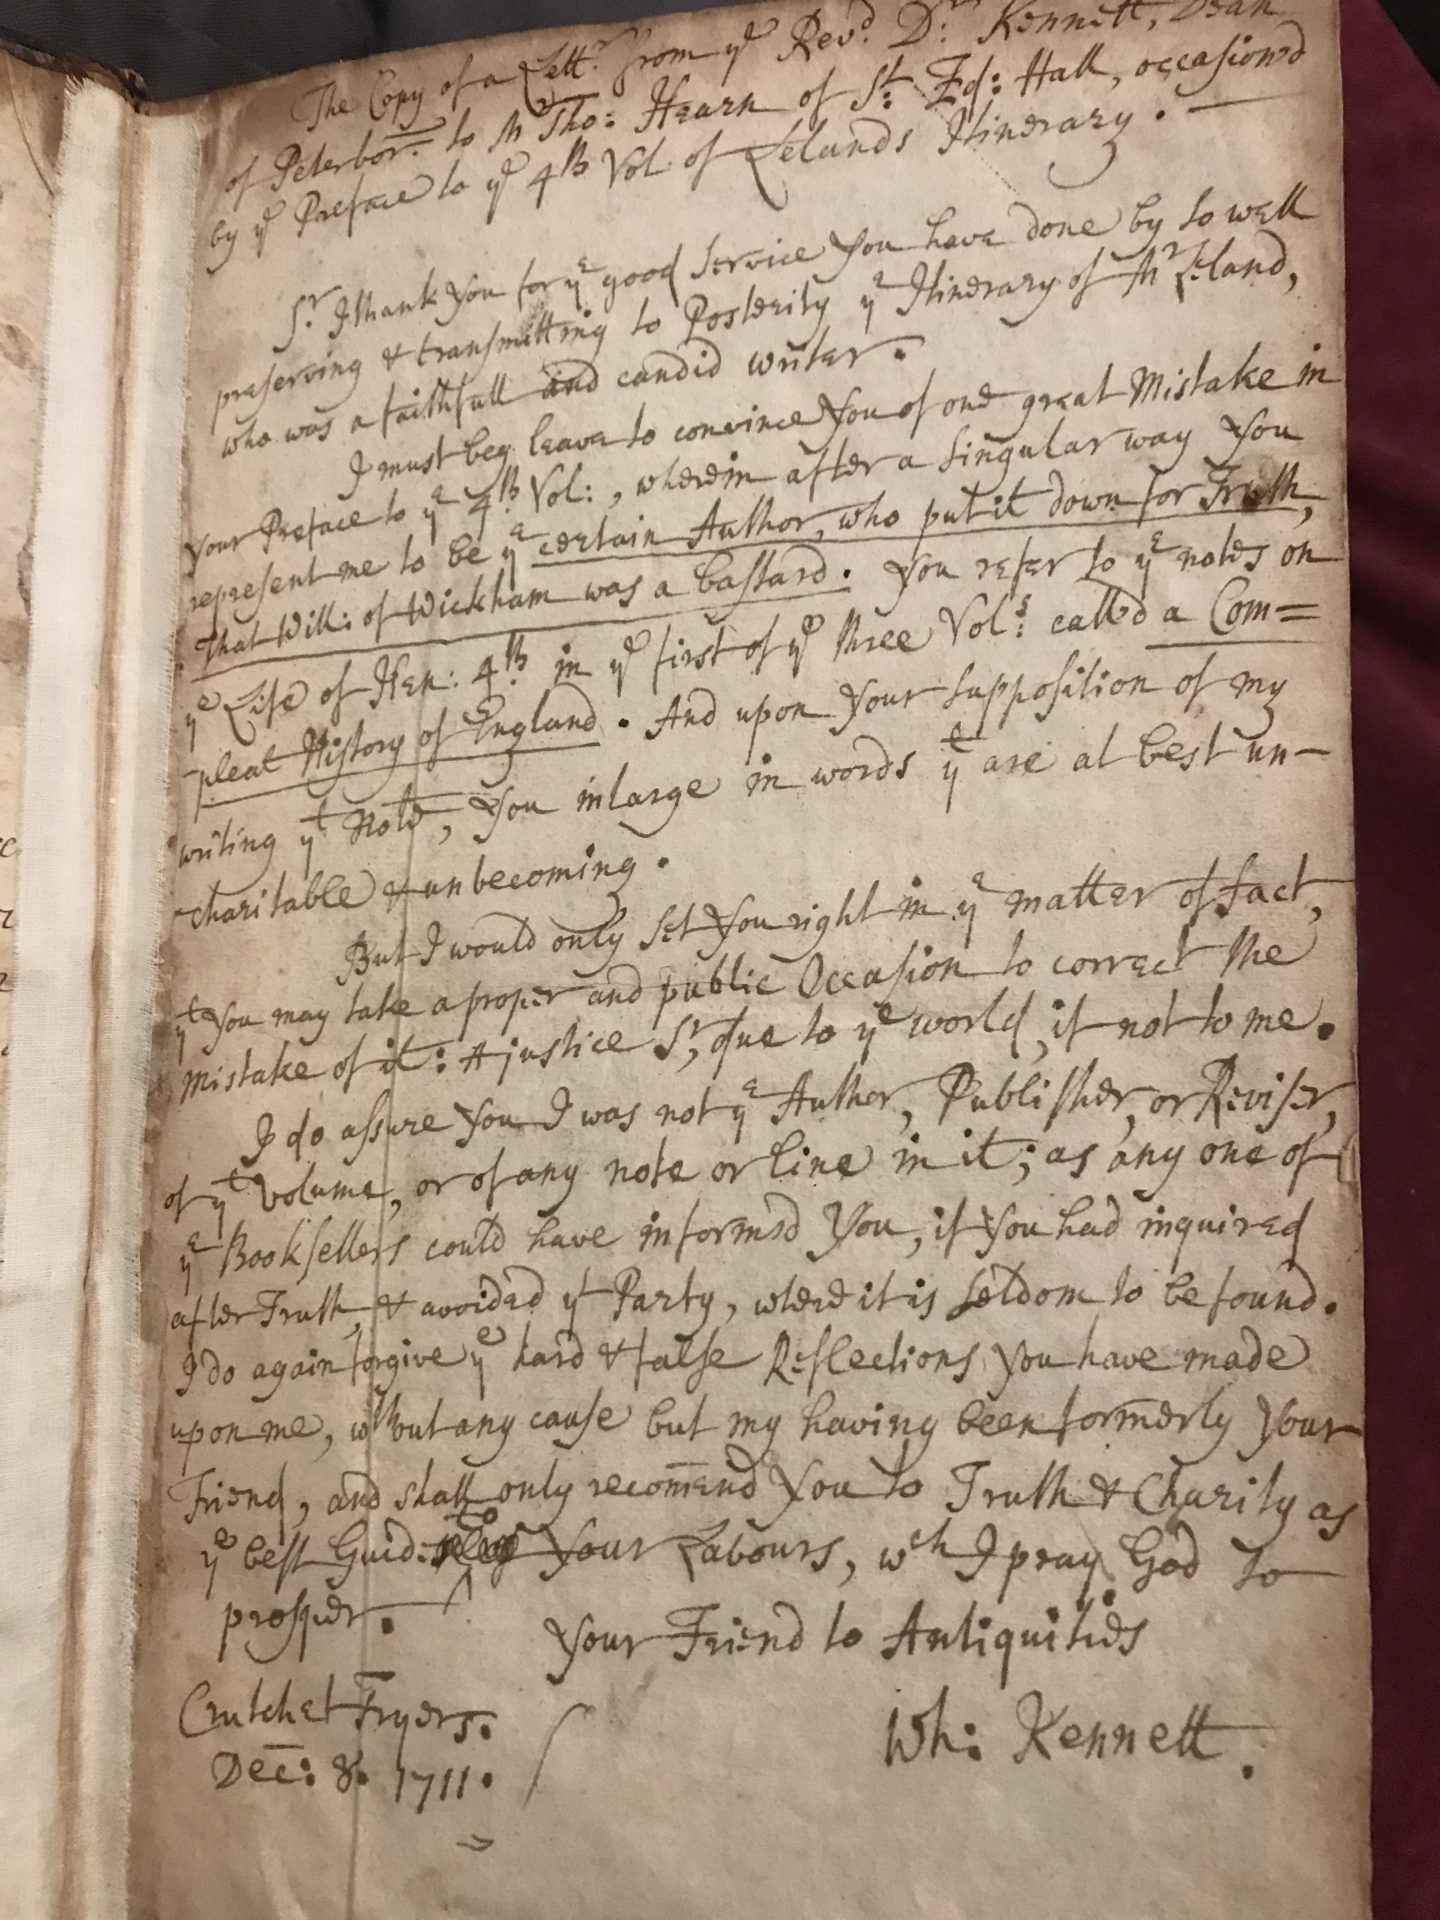 The Copy of a Lettr. from ye Revd. Dr. Kennett, Dean
of Peterbor: to Mr Tho: Hearn of St. Ed: Hall, occasion'd
by ye Preface to ye 4th Vol. of Lelands Itinerary.
Sr. I thank you for ye good service you have done by so well
preserving & transmitting to Posterity ye Itinerary of Mr Leland,
who was a faithfull and candid writer.
I must beg leave to convince you of one great Mistake in
your Preface to ye 4th Vol:, wherein after a singular way you
represent me to be ye certain Author, who put it down for Truth,
That Will: of Wickham was a bastard. You refer to ye notes on
ye Life of Hen: 4th. in ye first of ye three Vols: called a Com=
pleat History of England. And upon your supposition of my
writing yt Note, you inlarge in words yt are at best un-
charitable & unbecoming.
But I would only set you right in ye matter of fact,
yt you may take a proper and public Occasion to correct the
mistake of it: A justice Sr, due to ye world, if not to me.
I do assure you I was not ye Author, Publisher, or Reviser,
of yt volume, or of any note or line in it; as any one of
ye Booksellers could have informed you, if you had inquired
after Truth, & avoided yt Party, where it is seldom to be found.
I do again forgive ye hard & false Reflections you have made
upon me, wthout any cause but my having been formerly your
Friend, and shall only recom̄end you to Truth & Charity as
ye best Guides to your Labours, wch I pray God to
prosper.
Your Friend to Antiquities
Crutchet Fryers.
Wh: Kennett.
Dec: 8. 1711.